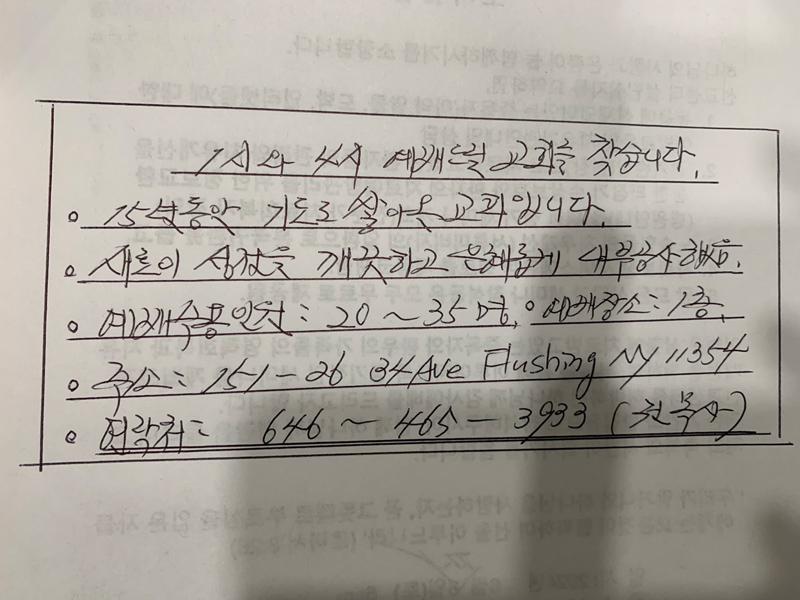 1시와 4시 예배드릴 교회를 찾습니다.
15년동안 기도로 쌓아온 교회입니다.
새로이 성전을 깨끗하고 은혜롭게 내부공사했음.
예배수용인원: 20~35명, 예배장소: 1층,
주소: 151-26 34 Ave Flushing NY 11354
연락처: 646~465-3933 (목사)